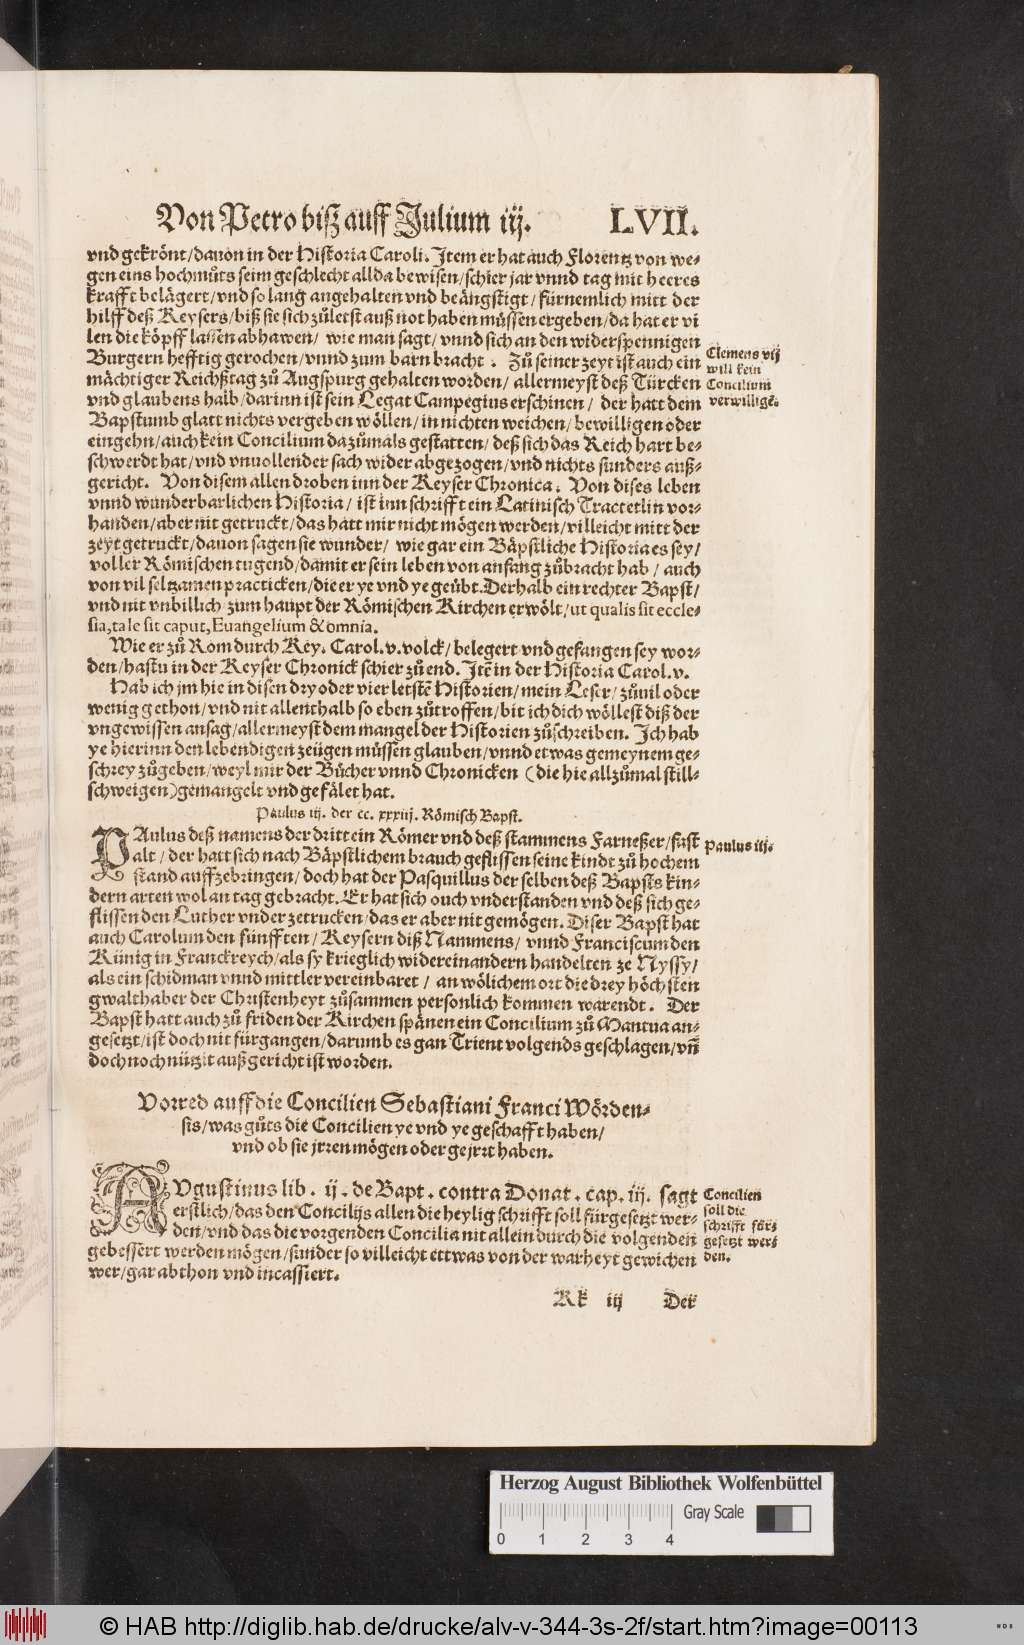 Von Petro biß auff Julium iij. LVII.
vnd gekrönt/dauon in der Historia Caroli. Item er hat auch Florentz von we-
gen eins hochmůts seim geschlecht allda bewisen/schier jar vnnd tag mit heeres
krafft belägert/vnd so lang angehalten vnd beängstigt/fürnemlich mitt der
hilff deß Keysers/biß sie sich zůletst auß not haben müssen ergeben/da hat er vi
len die köpff lassen abhawen/ wie man sagt/vnnd sich an den widerspennigen
Burgern hefftig gerochen/vnnd zum barn bracht. Zů seiner zeyt ist auch ein
mächtiger Reichßtag zů Augspurg gehalten worden/ allermeyst deß Türcken
vnd glaubens halb/darinn ist sein Legat Campegius erschinen/ der hatt dem
Bapstumb glatt nichts vergeben wöllen/in nichten weichen/bewilligen oder
eingehn/auch kein Concilium dazůmals gestatten/deß sich das Reich hart be-
schwerdt hat/vnd vnuollender sach wider abgezogen/vnd nichts sunders auß-
gericht. Von disem allen droben inn der Keyser Chronica. Von dises leben
vnnd wunderbarlichen Historia/ ist inn schrifft ein Latinisch Tractetlin vor-
handen/aber nit getruckt/das hatt mir nicht mögen werden/villeicht mitt der
zeyt getruckt/dauon sagen sie wunder/ wie gar ein Bäpstliche Historia es sey/
voller Römischen tugend/damit er sein leben von anfang zůbracht hab/ auch
von vil seltzamen practicken/die er ye vnd ye geübt. Derhalb ein rechter Bapst/
vnd nit vnbillich zum haupt der Römischen Kirchen erwölt/ut qualis sit eccle-
sia,tale sit caput,Euangelium & omnia.
Wie er zů Rom durch Key. Carol.v.volck/belegert vnd gefangen sey wor-
den/hastu in der Keyser Chronick schier zů end. Itē in der Historia Carol.v.
Hab ich jm hie in disen dry oder vier letstē Historien/mein Leser/zůuil oder
wenig gethon/vnd nit allenthalb so eben zůtroffen/bit ich dich wöllest diß der
vngewissen ansag/allermeyst dem mangel der Historien zůschreiben. Ich hab
ye hierinn den lebendigen zeügen müssen glauben/vnnd etwas gemeynem ge-
schrey zůgeben/weyl mir der Bücher vnnd Chronicken (die hie allzůmal still-
schweigen)gemangelt vnd gefälet hat.
Paulus iij. der cc. xxxiij. Römisch Bapst.
PAulus deß namens der dritt ein Römer vnd deß stammens Farneßer/fast
alt/der hatt sich nach Bäpstlichem brauch geflissen seine kindt zů hochem
stand auffzebringen/doch hat der Pasquillus der selben deß Bapsts kin-
dern arten wol an tag gebracht. Er hat sich ouch vnderstanden vnd deß sich ge-
flissen den Luther vnder zetrucken/das er aber nit gemögen. Diser Bapst hat
auch Carolum den fünfften/Keysern diß Nammens/ vnnd Franciscum den
Künig in Franckreych/als sy krieglich widereinandern handelten ze Nyssy/
als ein schidman vnnd mittler vereinbaret/ an wölichem ort die drey höchsten
gwalthaber der Christenheyt zůsammen personlich kommen warendt. Der
Bapst hatt auch zů friden der Kirchen spänen ein Concilium zů Mantua an-
gesetzt/ist doch nit fürgangen/darumb es gan Trient volgends geschlagen/vñ
doch noch nützit außgericht ist worden.
Vorred auff die Concilien Sebastiani Franci Wörden-
sis/was gůts die Concilien ye vnd ye geschafft haben/
vnd ob sie jrren mögen oder gejrrt haben.
AVgustinus lib. ij. de Bapt. contra Donat. cap. iij. sagt
erstlich/das den Concilijs allen die heylig schrifft soll fürgesetzt wer-
den/vnd das die vorgenden Concilia nit allein durch die volgenden
gebessert werden mögen/sunder so villeicht ettwas von der warheyt gewichen
wer/gar abthon vnd incassiert.
Kk iij Der
Clemens vij
will kein
Concilium
verwilligē.
Paulus iij.
Concilien
soll die
schrifft für-
gesetzt wer-
den.
Herzog August Bibliothek Wolfenbüttel
Gray Scale
0 1 2 3 4
© HAB http://diglib.hab.de/drucke/alv-v-344-3s-2f/start.htm?image=00113